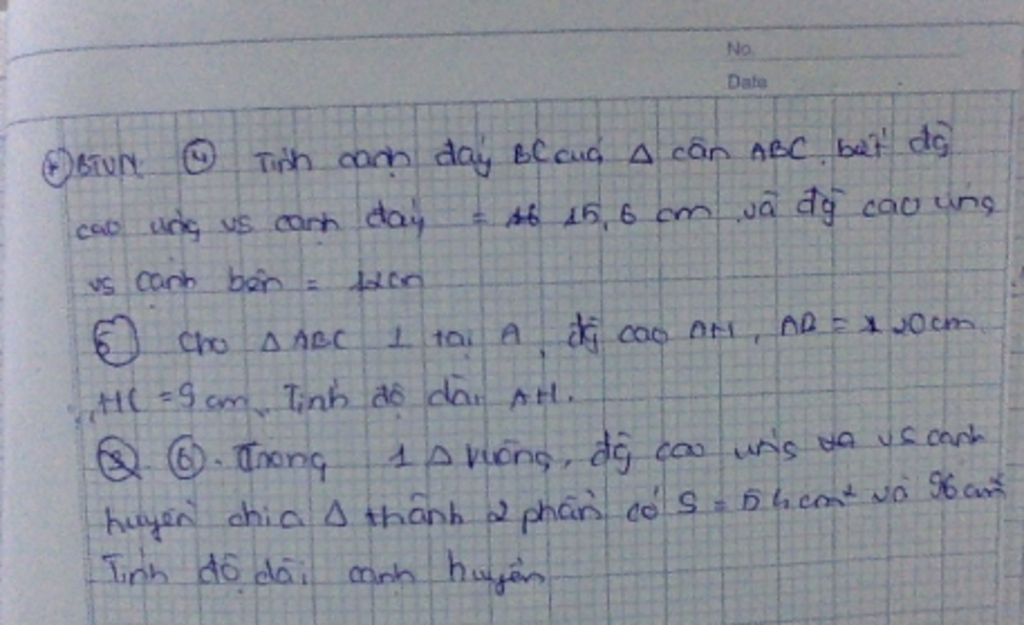 No
Date
BTVN. ④ Tính cạnh đáy BC của Δ cân ABC, biết độ
cao ứng vs cạnh đáy = 15,6 cm và độ cao ứng
vs cạnh bên = 12cm
⑤ Cho Δ ABC ⊥ tại A, độ cao AH, AB = 20cm
HC = 9 cm. Tính độ dài AH.
⑥. Trong 1 Δ vuông, độ cao ứng vs cạnh
huyền chia Δ thành 2 phần có S = 54cm² và 96cm²
Tính độ dài cạnh huyền